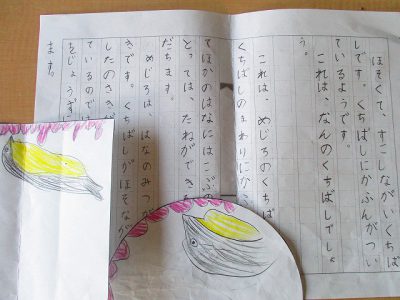 ほそくて、すこしながいくちば
しです。くちばしにかふんがつい
ているようです。
これは、なんのくちばしでしょ
う。
これは、めじろのくちば
くちばしのまわりに
てほかのはなにはこぶの
とっては、たねができ
だちます。
めじろは、はなのみつが
きです。くちばしがほそなが
したのさき
ているので
をじょうず
ます。